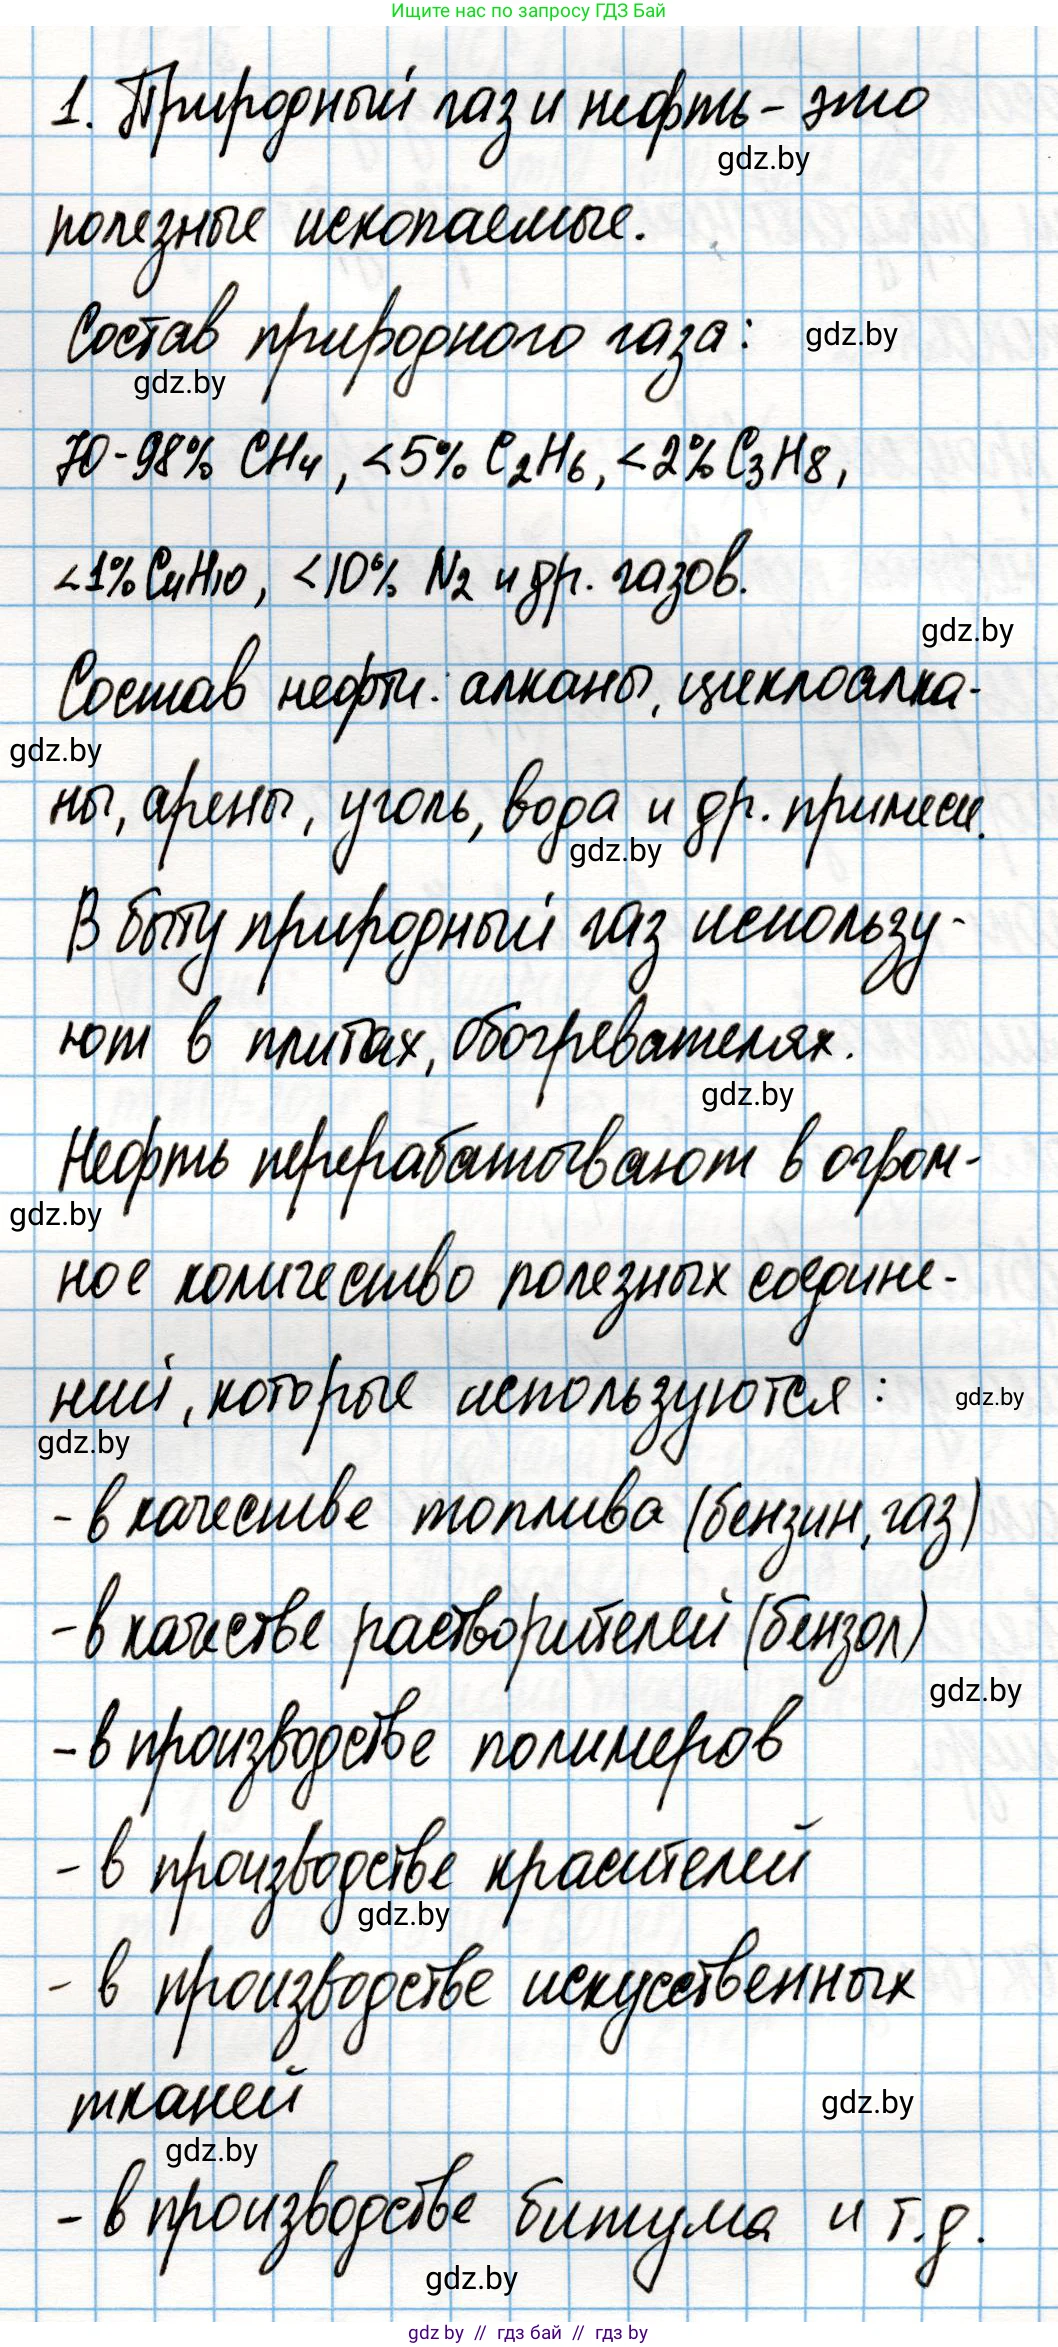 Ищите нас по запросу ГДЗ Бай
1. Природный газ и нефть - это
gdz.by
полезные ископаемые.
Состав природного газа:
gdz.by
gdz.by
70-98% CH4, <5% C2H6, <2% C3H8,
<1% C4H10, <10% N2 и др. газов.
gdz.by
Состав нефти: алканы, циклоалка-
gdz.by
ны, арены, уголь, вода и др. примеси.
gdz.by
В быту природный газ использу-
ют в плитах, обогревателях.
gdz.by
Нефть перерабатывают в огром-
gdz.by
ное количество полезных соедине-
ний, которые используются:
gdz.by
gdz.by
- в качестве топлива (бензин, газ)
- в качестве растворителей (бензол)
gdz.by
- в производстве полимеров
- в производстве красителей
gdz.by
- в производстве искусственных
тканей
gdz.by
gdz.by
- в производстве битума и т.д.
gdz.by
gdz by // гдз бай // гдз by